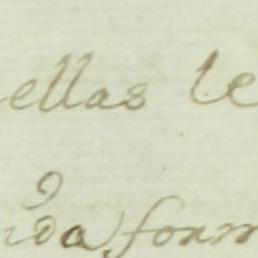 ellas le
ida form